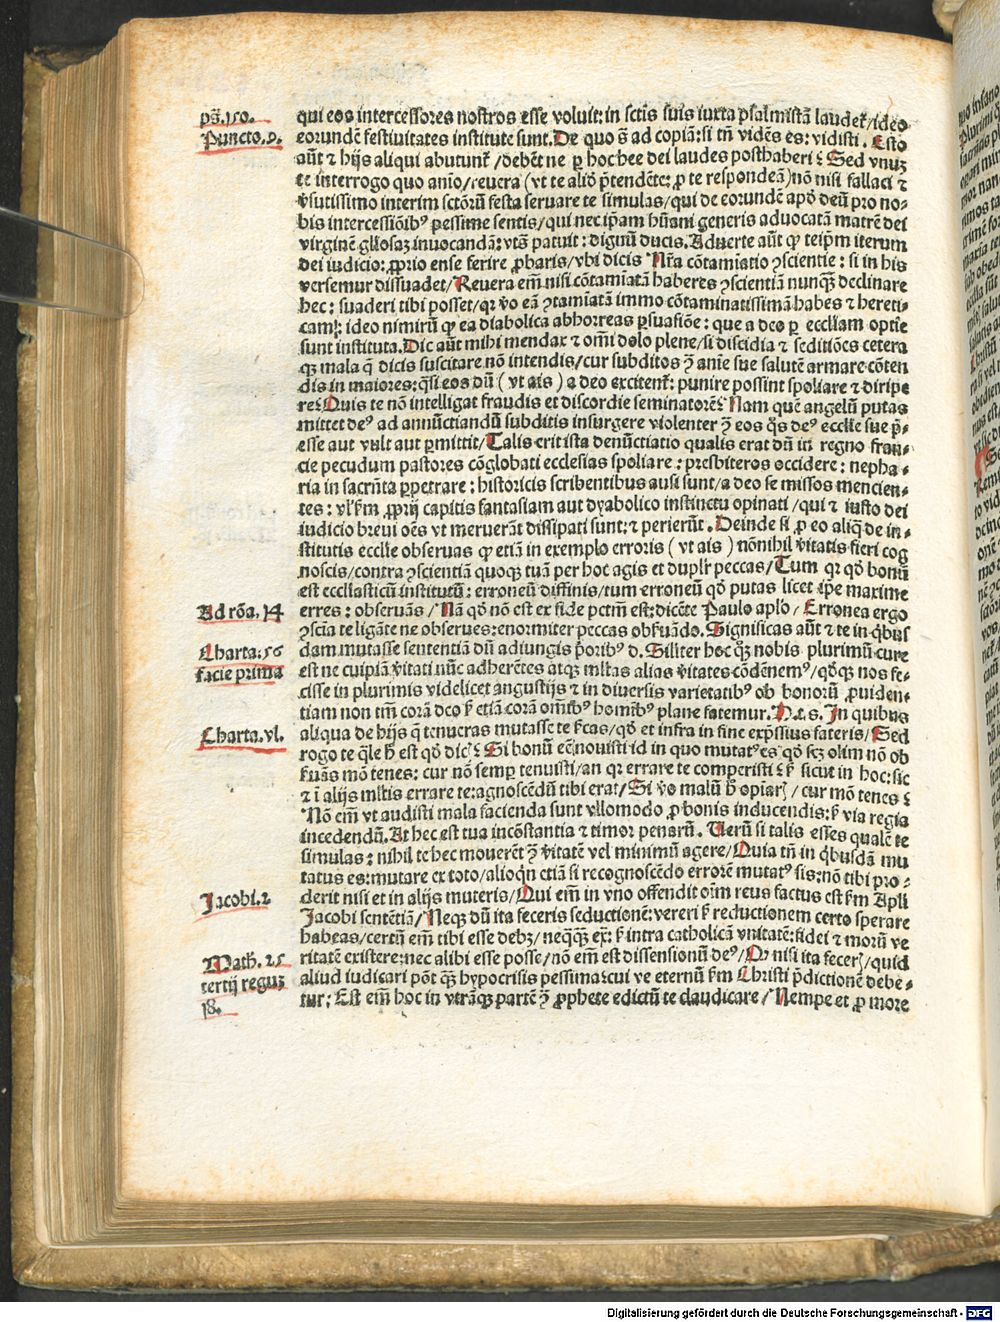 pṡ.150.
Puncto.9.
qui eos intercessores nostros esse voluit: in sctīs suis iuxta psalmistā laudet᷑/ideo
eorundē festiuitates institute sunt. De quo s̄ ad copiā: si tn̄ vidēs es: vidisti. Esto
aūt ⁊ hijs aliqui abutunt᷑/debēt ne ꝑ hoc hee dei laudes posthaberi? Sed vnuꝫ
te interrogo quo anīo/reuera (vt te aliꝙ p̄tendēte: ꝓ te respondeā) nō nisi fallaci ⁊
v̓sutissimo interim sctōꝝ festa seruare te simulas/qui de eorundē apō deū pro no-
bis intercessiōibꝰ pessime sentis/qui nec ip̄am hūani generis aduocatā matrē dei
virginē gl̄iosaꝫ inuocandā: vtā patuit: dignū ducis. Aduerte aūt ꝙ teip̄m iterum
dei iudicio: ꝓprio ense ferire ꝓbaris/vbi dicis Nr̄a cōtamīatio ꝯscientie: si in his
versemur dissuadet/Reuera em̄ nisi cōtamīatā haberes ꝯscientiā nunqꝫ declinare
hec: suaderi tibi posset/qꝛ v̓o eā ꝯtamīatā immo cōtaminatissimā habes ⁊ hereti-
cam: ideo nimirū ꝙ ea diabolica abhorreas ꝑsuasiōe: que a deo ꝑ eccl̄iam optīe
sunt instituta. Dic aūt mihi mendax ⁊ om̄i dolo plene/si discidia ⁊ seditiōes cetera
qꝫ mala q̄ dicis suscitare nō intendis/cur subditos ꝯ̄ aīe sue salutē armare cōten
dis in maiores: q̄si eos dū (vt ais) a deo excitent᷑: punire possint spoliare ⁊ diripe
re? Quis te nō intelligat fraudis et discordie seminatorē? Nam quē angelū putas
mittet deꝰ ad annūctiandū subditis insurgere violenter ꝯ̄ eos q̊s deꝰ eccl̄ie sue p̄-
esse aut vult aut ꝑmittit/Talis erit ista denūctiatio qualis erat dū in regno fran-
cie pecudum pastores cōglobati ecclesias spoliare: presbiteros occidere: nepha-
ria in sacrn̄ta ꝑpetrare: historicis scribentibus ausi sunt/a deo se missos mencien-
tes: vl̓ ẜm ꝓprij capitis fantasiam aut dyabolico instinctu opinati/qui ⁊ iusto dei
iudicio breui oēs vt meruerāt dissipati sunt: ⁊ perierūt. Deinde si ꝓ eo aliq̄ de in-
stitutis eccl̄ie obseruas ꝙ etiā in exemplo erroris (vt ais) nōnihil v̓itatis fieri cog
noscis/contra ꝯscientiā quoqꝫ tuā per hoc agis et duplr̄ peccas/Tum qꝛ qd̓ bonū
est eccl̄iasticū institutū: erroneū diffinis/tum erroneū qd̓ putas licet ip̄e maxime
Ad rōa.14
erres: obseruās/Nā qd̓ nō est ex fide pctm̄ est: dicēte Paulo apl̓o/Erronea ergo
ꝯscīa te ligāte ne obserues: enormiter peccas obẜuādo. Significas aūt ⁊ te in q̄bus
Charta:56
dam mutasse sententiā dū adiungis p̄oribꝰ d. Sil̓iter hoc q̊qꝫ nobis plurimū cure
facie prima
est ne cuipiā v̓itati nūc adherētes atqꝫ ml̓tas alias v̓itates cōdēnemꝰ/qd̓qꝫ nos fe-
cisse in plurimis videlicet angustijs ⁊ in diuersis varietatibꝰ ob bonorū ꝓuiden-
tiam non tm̄ corā deo ẜ etiā corā om̄ibꝰ homībꝰ plane fatemur. H.t.s. In quibus
Charta.vl.
aliqua de hijs q̄ tenueras mutasse te ẜcas/qd̓ et infra in fine exp̄ssius fateris/Sed
rogo te q̄le h̓ est qd̓ dic̓? Si bonū eē nouisti id in quo mutatꝰ es qd̓ scꝫ olim nō ob
ẜuās mō tenes: cur nō semꝑ tenuisti/an qꝛ errare te comperisti? ẜ sicut in hoc: sic
⁊ ī alijs ml̓tis errare te: agnoscēdū tibi erat/Si v̓o malū h̓ opiar̓/cur mō tenes?
Nō em̄ vt audisti mala facienda sunt vllomodo ꝓ bonis inducendis: ẜ via regia
incedendū. At hec est tua incōstantia ⁊ timor penarū. Uerū si talis esses qualē te
simulas: nihil te hec mouerēt ꝯ̄ v̓itatē vel minimū agere/Quia tn̄ in q̄busdā mu
tatus es: mutare ex toto/alioq̄n etiā si recognoscēdo errorē mutatꝰ sis: nō tibi pro-
Jacobi.2
derit nisi et in alijs muteris/Qui em̄ in vno offendit oīm reus factus est ẜm Apl̓i
Jacobi sentētiā/Neqꝫ dū ita feceris seductionē: vereri ẜ reductionem certo sperare
habeas/certū em̄ tibi esse debꝫ/neq̄qꝫ ex: ẜ intra catholicā vnitatē: fidei ⁊ morū ve
Math.25
ritatē existere: nec alibi esse posse/nō em̄ est dissensionū deꝰ/Qꝛ nisi ita fecer̓/quid
tertij reguꝫ
aliud iudicari pōt qꝫ hypocrisis pessima: cui ve eternū ẜm Christi p̄dictionē debe-
18.
tur: Est em̄ hoc in vtrāqꝫ partē ꝯ̄ ꝓphete edictū te claudicare/Nempe et ꝓ more
Digitalisierung gefördert durch die Deutsche Forschungsgemeinschaft - DFG